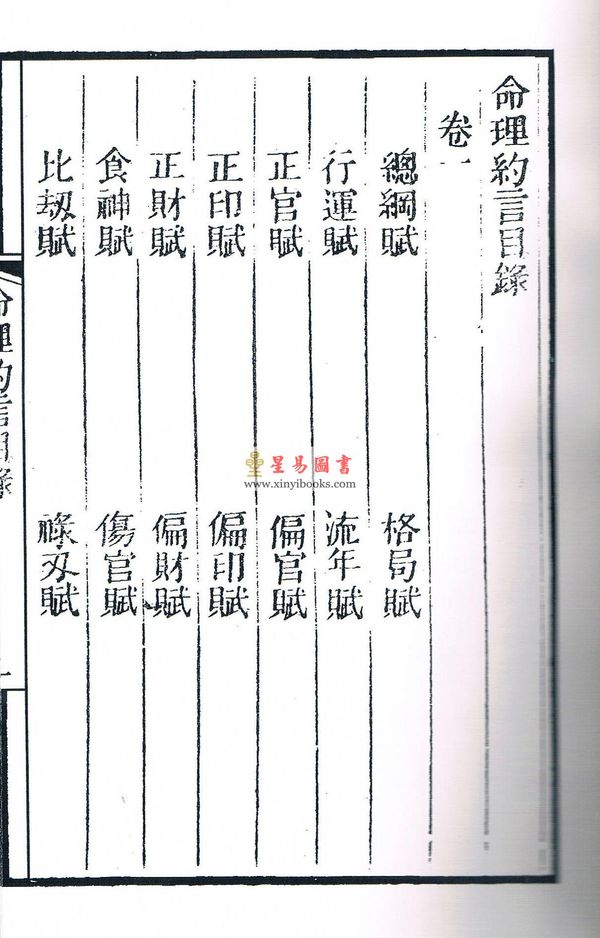 命理約言目錄
卷一
總綱賦 格局賦
行運賦 流年賦
正官賦 偏官賦
正印賦 偏印賦
正財賦 偏財賦
食神賦 傷官賦
比刼賦 祿刃賦
命理約言目錄
一
星易圖書
www.xinyibooks.com